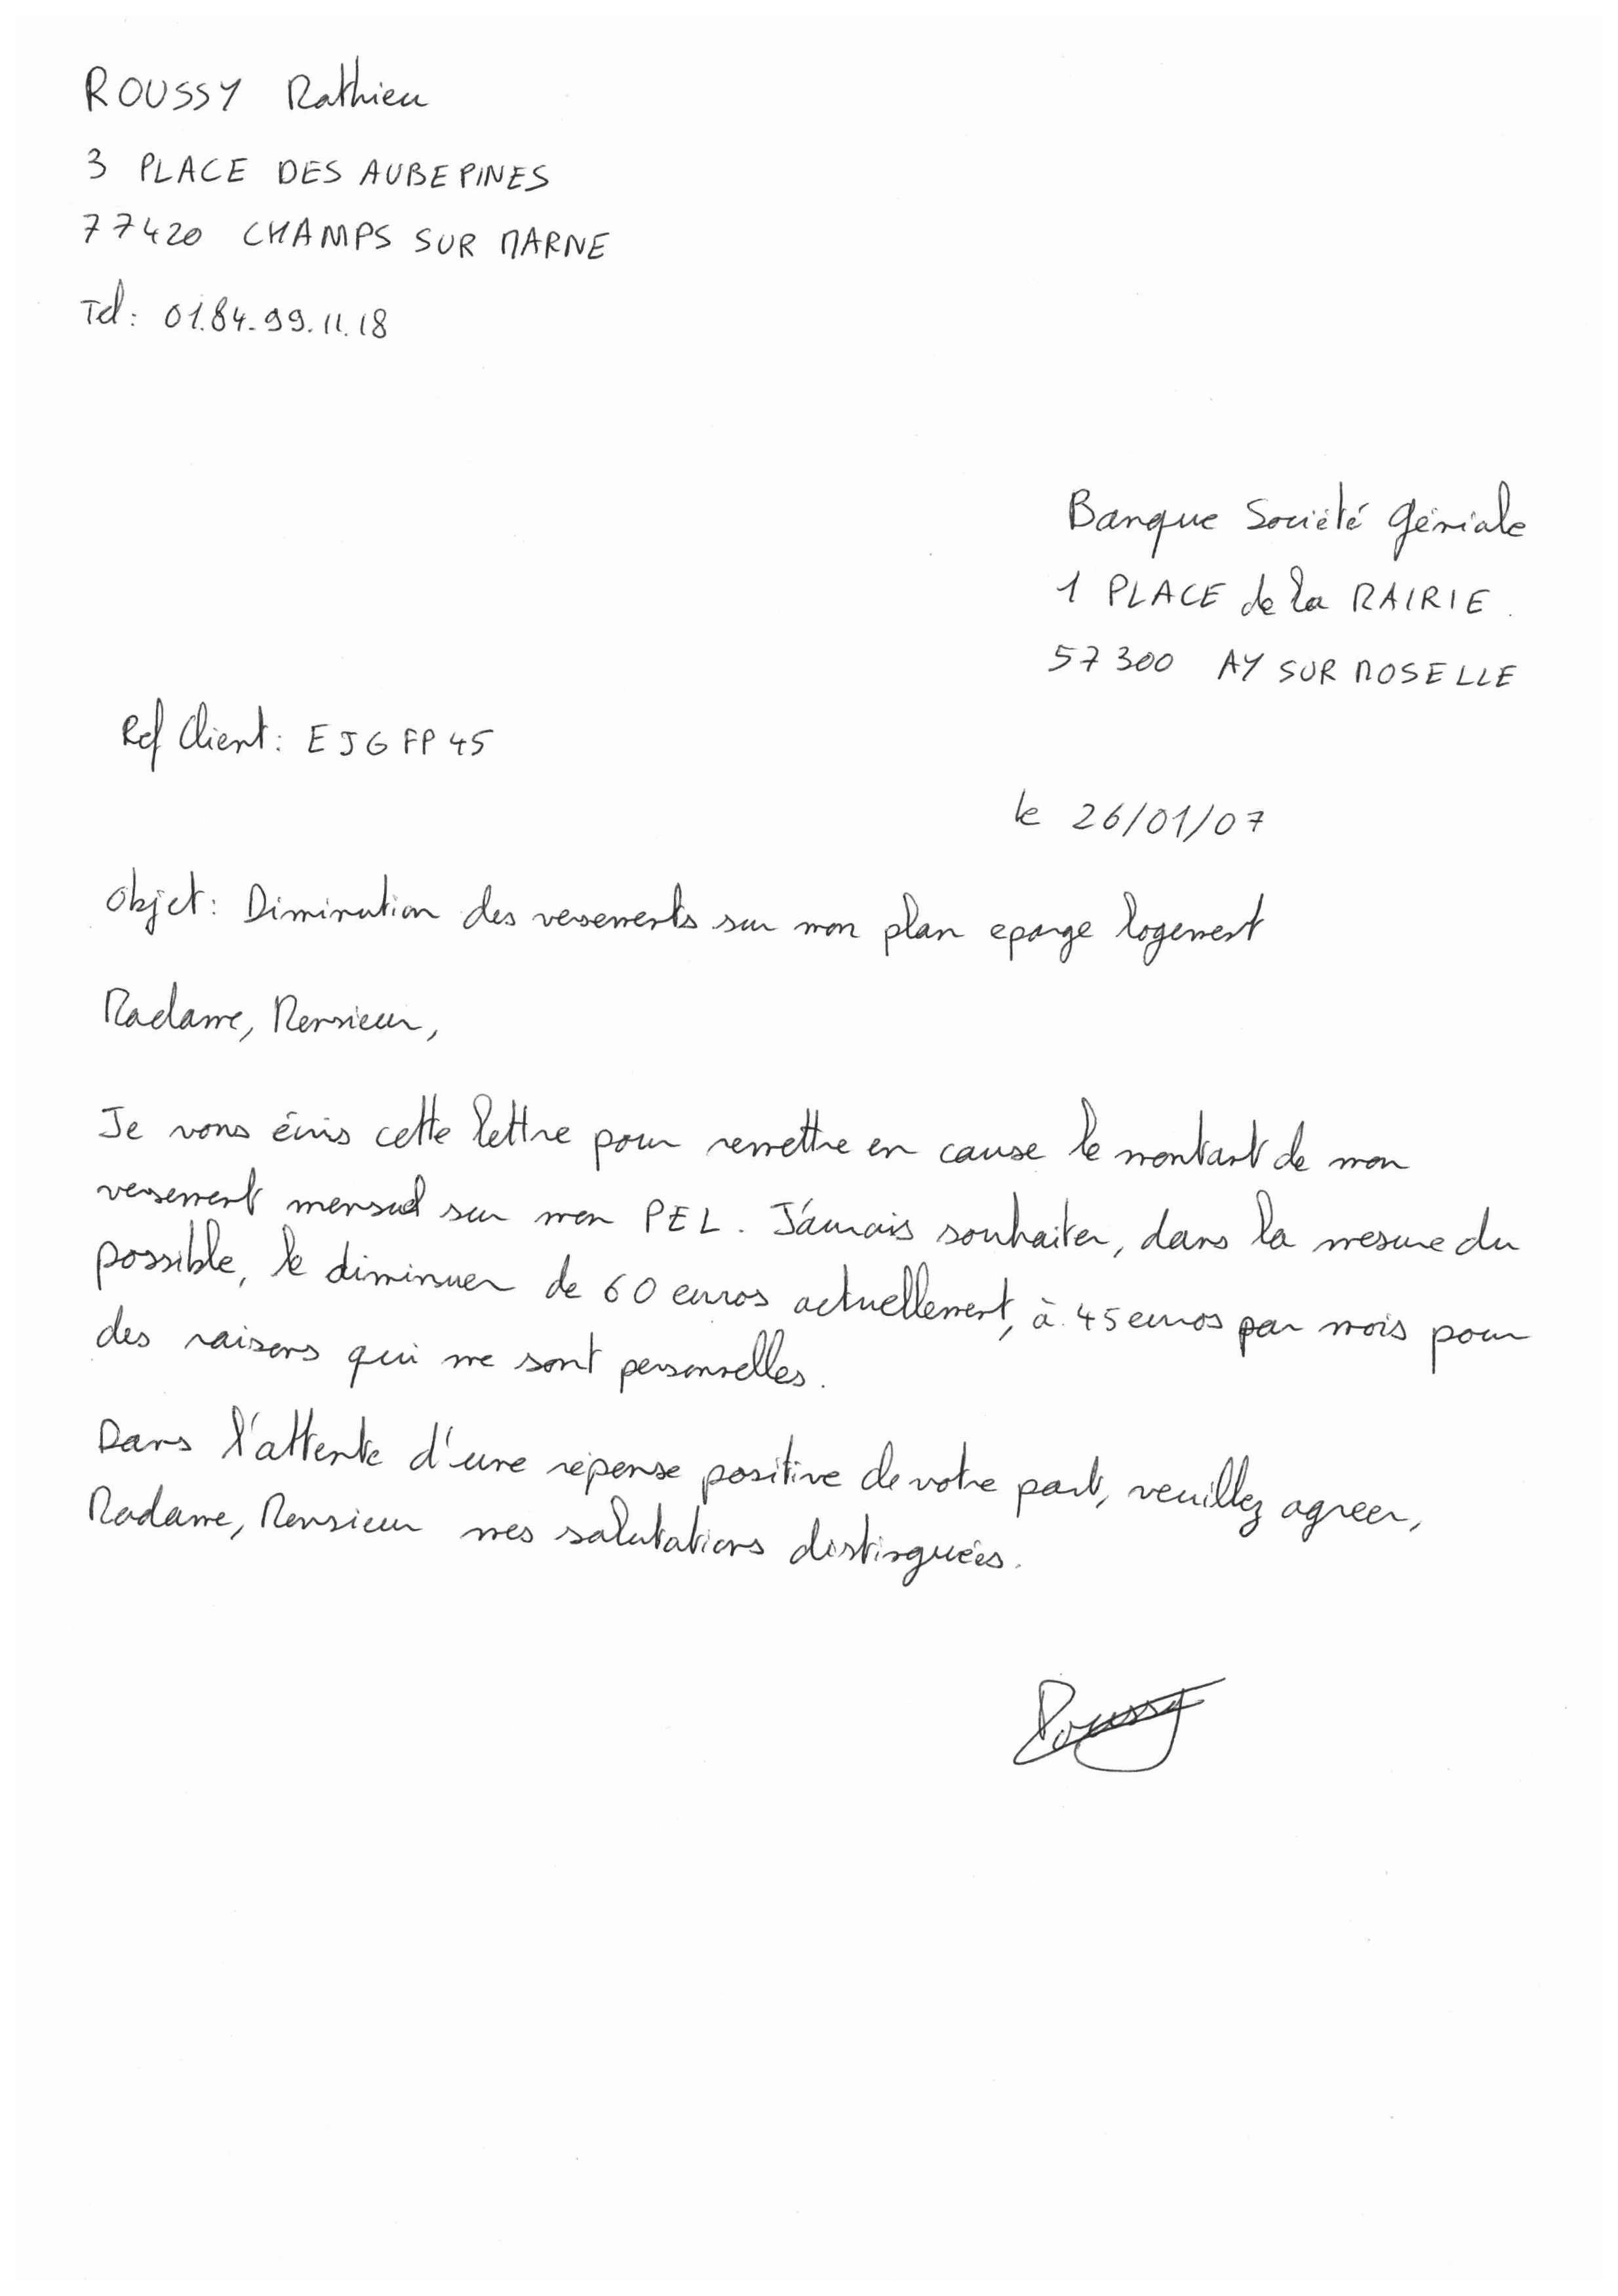 ROUSSY Mathieu
3 PLACE DES AUBEPINES
77420 CHAMPS SUR MARNE
Tel: 01.84.99.11.18
Banque Société Géniale
1 PLACE de la MAIRIE.
57300 AY SUR MOSELLE
Ref Client: EJGFP45
le 26/01/07
Objet: Diminution des versements sur mon plan eparge logement
Madame, Monsieur,
Je vous écris cette lettre pour remettre en cause le montant de mon
versement mensuel sur mon PEL. J'aurais souhaiter, dans la mesure du
possible, le diminuer de 60 euros actuellement, à 45 euros par mois pour
des raisons qui me sont personnelles.
Dans l'attente d'une réponse positive de votre part, veuillez agreer,
Madame, Monsieur mes salutations distinguées.
Roussy